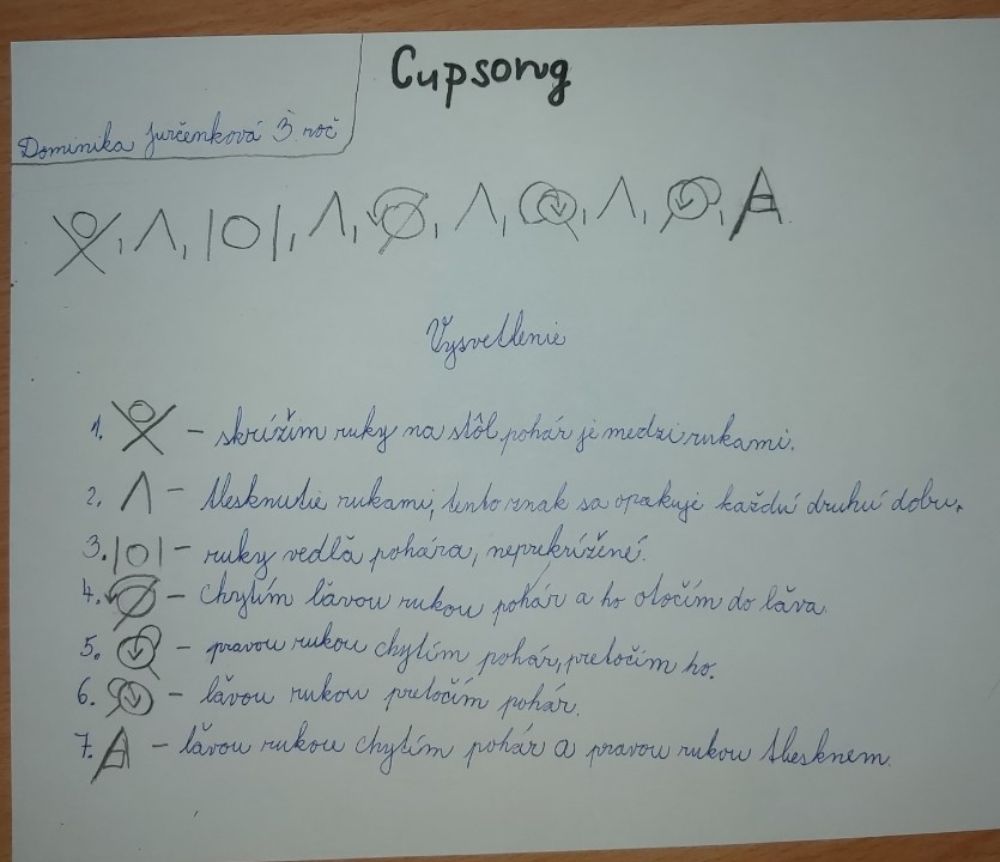 Cupsong
Dominika Jurčenková 3. roč
Vysvetlenie
1. – skrížim ruky na stôl, pohár je medzi rukami.
2. Λ – tlesknutie rukami, tento znak sa opakuje každú druhú dobu.
3. |O| – ruky vedlǎ pohára, neprekrížené.
4. – chytím lǎvou rukou pohár a ho otočím do lǎva.
5. – pravou rukou chytím pohár, pretočím ho.
6. – lǎvou rukou pretočím pohár.
7. – lǎvou rukou chytím pohár a pravou rukou tlesknem.